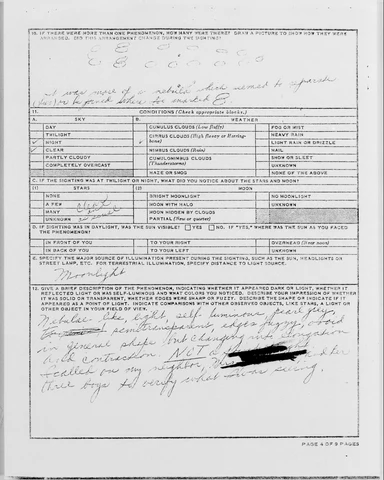 10. IF THERE WERE MORE THAN ONE PHENOMENON, HOW MANY WERE THERE? DRAW A PICTURE TO SHOW HOW THEY WERE
ARRANGED. DID THIS ARRANGEMENT CHANGE DURING THE SIGHTING?
It was more of a nebula which seemed to
11. CONDITIONS (Check appropriate blanks.)
A. SKY B. WEATHER
DAY CUMULUS CLOUDS (Low fluffy) FOG OR MIST
TWILIGHT CIRRUS CLOUDS (High fleecy or Herring-bone) HEAVY RAIN
NIGHT LIGHT RAIN OR DRIZZLE
CLEAR NIMBUS CLOUDS (Rain) HAIL
PARTLY CLOUDY CUMULONIMBUS CLOUDS (Thunderstorms) SNOW OR SLEET
COMPLETELY OVERCAST UNKNOWN
HAZE OR SMOG NONE OF THE ABOVE
C. IF THE SIGHTING WAS AT TWILIGHT OR NIGHT, WHAT DID YOU NOTICE ABOUT THE STARS AND MOON?
(1) STARS (2) MOON
NONE BRIGHT MOONLIGHT NO MOONLIGHT
A FEW MOON WITH HALO UNKNOWN
MANY MOON HIDDEN BY CLOUDS
UNKNOWN PARTIAL (New or quarter)
D. IF SIGHTING WAS IN DAYLIGHT, WAS THE SUN VISIBLE? YES NO. IF "YES," WHERE WAS THE SUN AS YOU FACED
THE PHENOMENON?
IN FRONT OF YOU TO YOUR RIGHT OVERHEAD (Near noon)
IN BACK OF YOU TO YOUR LEFT UNKNOWN
E. SPECIFY THE MAJOR SOURCE OF ILLUMINATION PRESENT DURING THE SIGHTING, SUCH AS THE SUN, HEADLIGHTS OR
STREET LAMP, ETC. FOR TERRESTRIAL ILLUMINATION, SPECIFY DISTANCE TO LIGHT SOURCE.
Moonlight
12. GIVE A BRIEF DESCRIPTION OF THE PHENOMENON, INDICATING WHETHER IT APPEARED DARK OR LIGHT, WHETHER IT
REFLECTED LIGHT OR WAS SELF-LUMINOUS AND WHAT COLORS YOU NOTICED. DESCRIBE YOUR IMPRESSION OF WHETHER
IT WAS SOLID OR TRANSPARENT, WHETHER EDGES WERE SHARP OR FUZZY. DESCRIBE THE SHAPE OR INDICATE IF IT
APPEARED AS A POINT OF LIGHT. INDICATE COMPARISONS WITH OTHER OBSERVED OBJECTS, LIKE STARS, A LIGHT OR
OTHER OBJECT IN YOUR FIELD OF VIEW.
Nebulae like, light, self luminous, pearl grey,
semitransparent, edges fuzzy, ovoid
in general shape but changing with
and contraction. NOT a
I called on my neighbor, her
three boys to verify what I was seeing.
PAGE 4 OF 9 PAGES